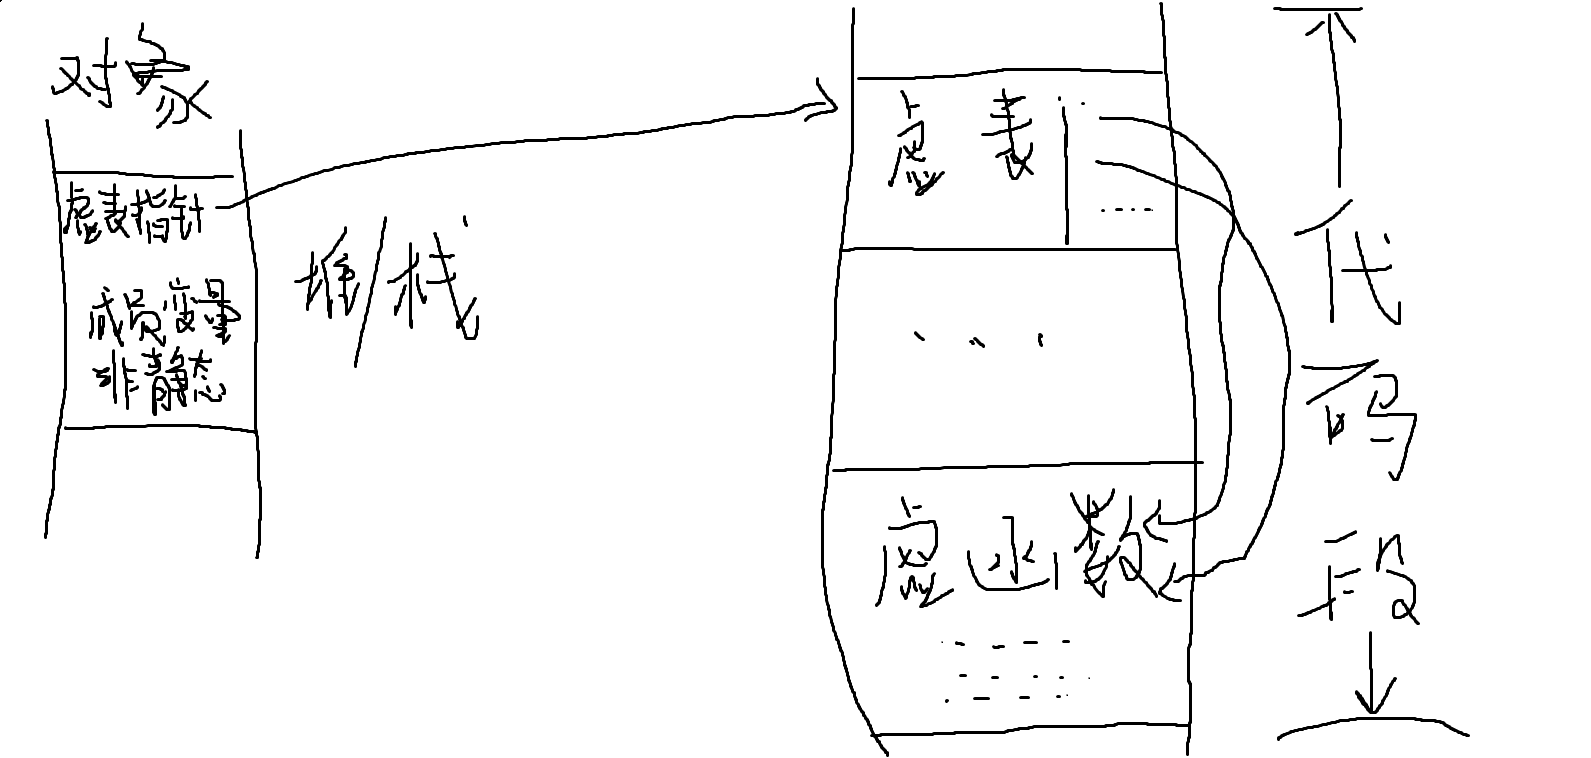 对象
虚表指针
成员变量
非静态
堆/栈
虚表
....
...
虚函数
代码段